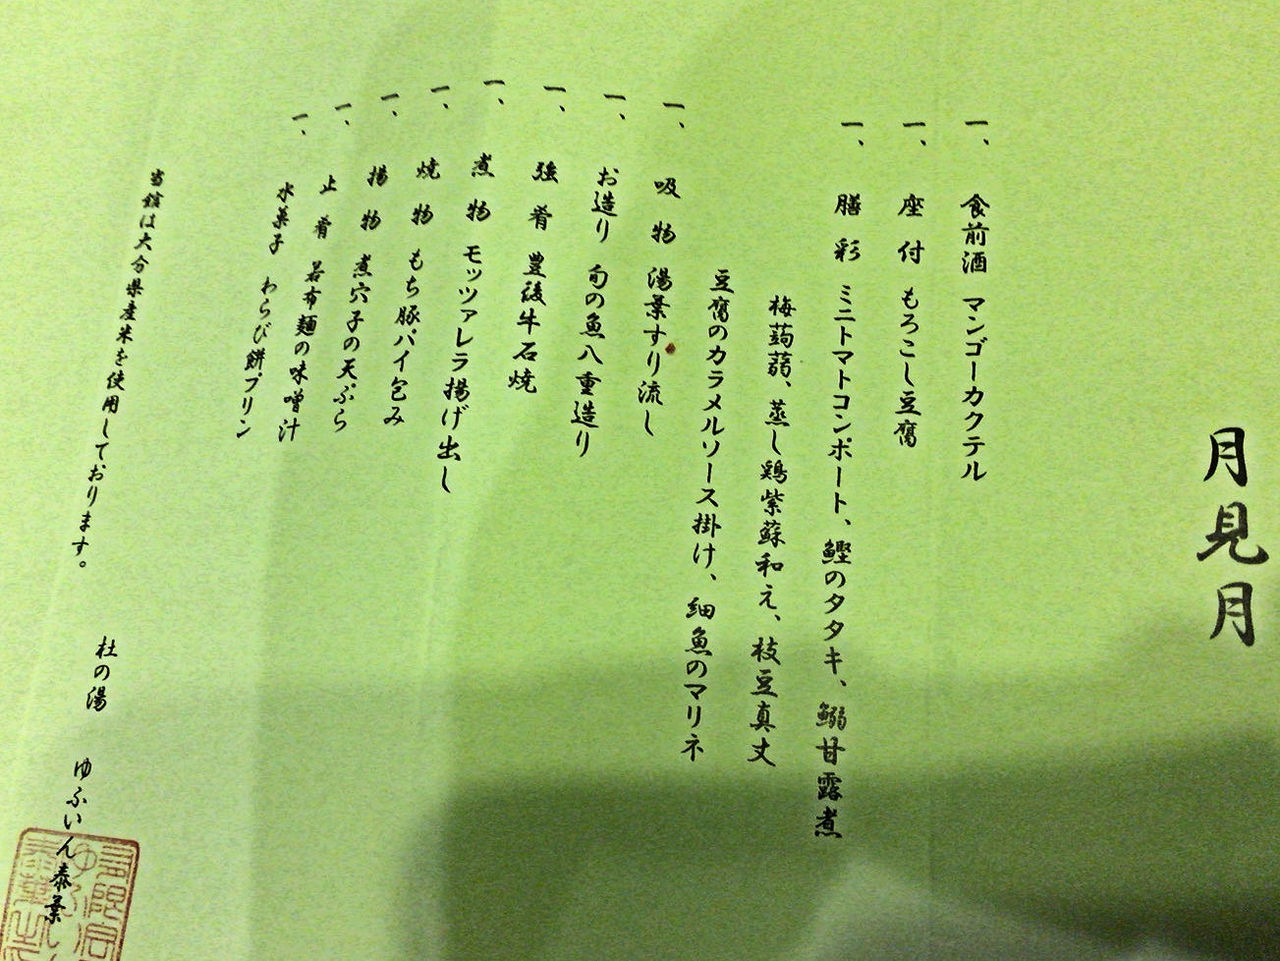 月見月
一、食前酒 マンゴーカクテル
一、座付 もろこし豆腐
一、膳彩 ミニトマトコンポート、鰹のタタキ、鰯甘露煮
梅蒟蒻、蒸し鶏紫蘇和え、枝豆真丈
豆腐のカラメルソース掛け、細魚のマリネ
一、吸物 湯葉すり流し
一、お造り 旬の魚八重造り
一、強肴 豊後牛石焼
一、煮物 モッツァレラ揚げ出し
一、焼物 もち豚パイ包み
一、揚物 煮穴子の天ぷら
一、止肴 若布麺の味噌汁
一、水菓子 わらび餅プリン
当館は大分県産米を使用しております。
杜の湯 ゆふいん泰葉